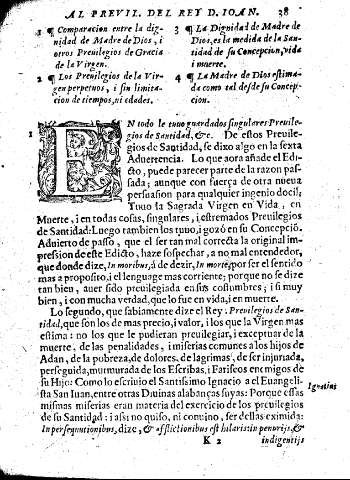 AL PREVIL. DEL REY D. IOAN. 38
1 ¶ Comparacion entre la dignidad
nidad de Madre de Dios, i
otros Preuilegios de Gracia
de la Virgen.
2 ¶ Los Preuilegios de la Virgen
perpetuos, i sin limitacion
de tiempos, ni edades.
3 ¶ La Dignidad de Madre de
Dios, es la medida de la Santidad
de su Concepcion, vida
i muerte.
4 ¶ La Madre de Dios estimada
como tal desde su Concepcion.
1 EN todo le tuuo guardados singulares Preuilegios
de Santidad, &c. De estos Preuilegios
de Santidad, se dixo algo en la sexta
Aduerencia. Lo que aora añade el Edicto,
puede parecer parte de la razon passada;
aunque con fuerça de otra nueua
persuasion para qualquier ingenio docil:
Tuuo la Sagrada Virgen en Vida, en
Muerte, i en todas cosas, singulares, i estremados Preuilegios
de Santidad: Luego tambien los tuuo, i gozò en su Concepciõ.
Aduierto de passo, que el ser tan mal correcta la original impression
de este Edicto, haze sospechar, a no mal entendedor,
que donde dize, In moribus, à de dezir, In morte, por ser el sentido
mas a proposito, i el lenguage mas corriente; porque no se dize
tan bien, auer sido preuilegiada en sus costumbres; i si muy
bien, i con mucha verdad, que lo fue en vida, i en muerte.
Lo segundo, que sabiamente dize el Rey: Preuilegios de Santidad,
que son los de mas precio, i valor, i los que la Virgen mas
estima: no los que le pudieran preuilegiar, i exceptuar de la
muerte, de las penalidades, i miserias comunes a los hijos de
Adan, de la pobreza, de dolores, de lagrimas, de ser injuriada,
perseguida, murmurada de los Escribas, i Fariseos enemigos de
su Hijo: Como lo escriuio el Santissimo Ignacio a el Euangelista
San Iuan, entre otras Diuinas alabanças suyas: Porque essas
mismas miserias eran materia del exercicio de los preuilegios
de su Santidad: i assi no quiso, ni conuino, ser dellas eximida:
In persequutionibus, dize, & afflictionibus est hilaris: in penurijs, &
Ignatius
K 2 indigentijs